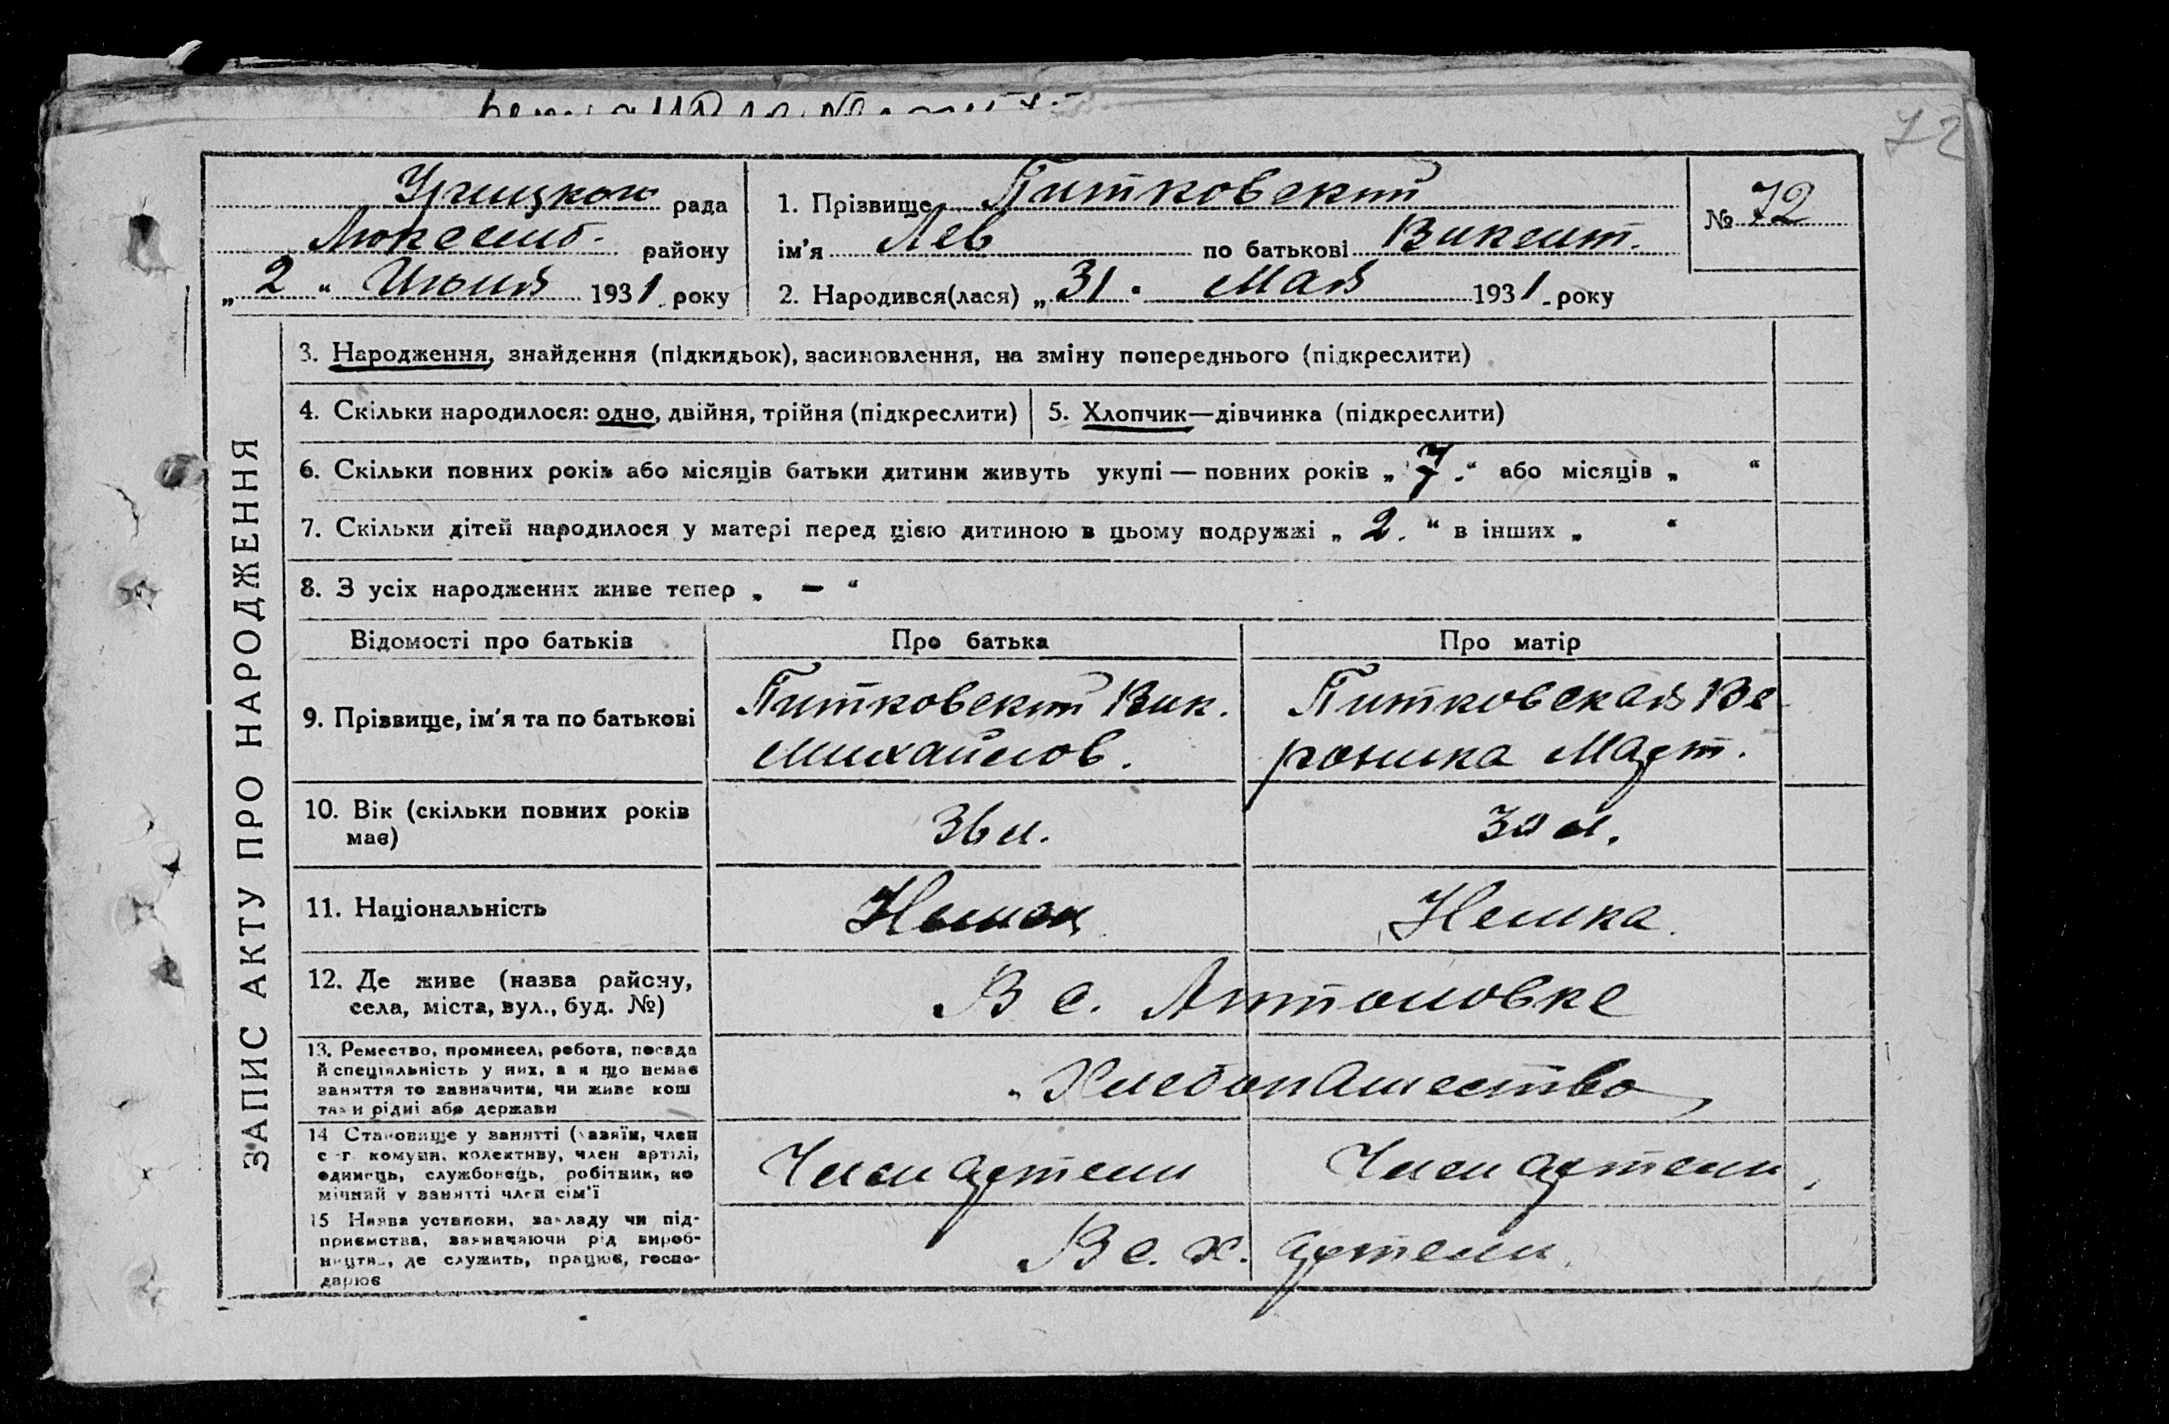 72
Урицкой рада
Люксемб. району
„ 2 “ Июня 1931. року
1. Прізвище Питковский
ім'я Лев по батькові Викент.
2. Народився(лася) „ 31 “ Мая 1931. року
№ 72
ЗАПИС АКТУ ПРО НАРОДЖЕННЯ
3. Народження, знайдення (підкидьок), засиновлення, на зміну попереднього (підкреслити)
4. Скільки народилося: одно, двійня, трійня (підкреслити)
5. Хлопчик—дівчинка (підкреслити)
6. Скільки повних років або місяців батьки дитини живуть укупі — повних років „ 7. “ або місяців „ “
7. Скільки дітей народилося у матері перед цією дитиною в цьому подружжі „ 2. “ в інших „ “
8. З усіх народжених живе тепер „ — “
Відомості про батьків Про батька Про матір
9. Прізвище, ім'я та по батькові
Питковский Вик.
Михайлов.
Питковская Ве
роника Март.
10. Вік (скільки повних років
має)
36 л.
30 л.
11. Національність
Немец
Немка.
12. Де живе (назва району,
села, міста, вул., буд. №)
В с. Антоновке
13. Ремество, промисел, робота, посада
й спеціяльність у них, а я що немає
заняття то зазначити, чи живе кош
там и рідні або держави
Хлебопашество
14 Становище у занятті (хазяїн, член
с-г. комуни, колективу, член артілі,
одинець, службовець, робітник, по
мічний у занятті член сім'ї
Член артели
Член артели.
15 Назва установи, закладу чи під-
приємства, зазначаючи рід вироб-
ництва, де служить, працює, госпо-
дарює
В с. х. артели.